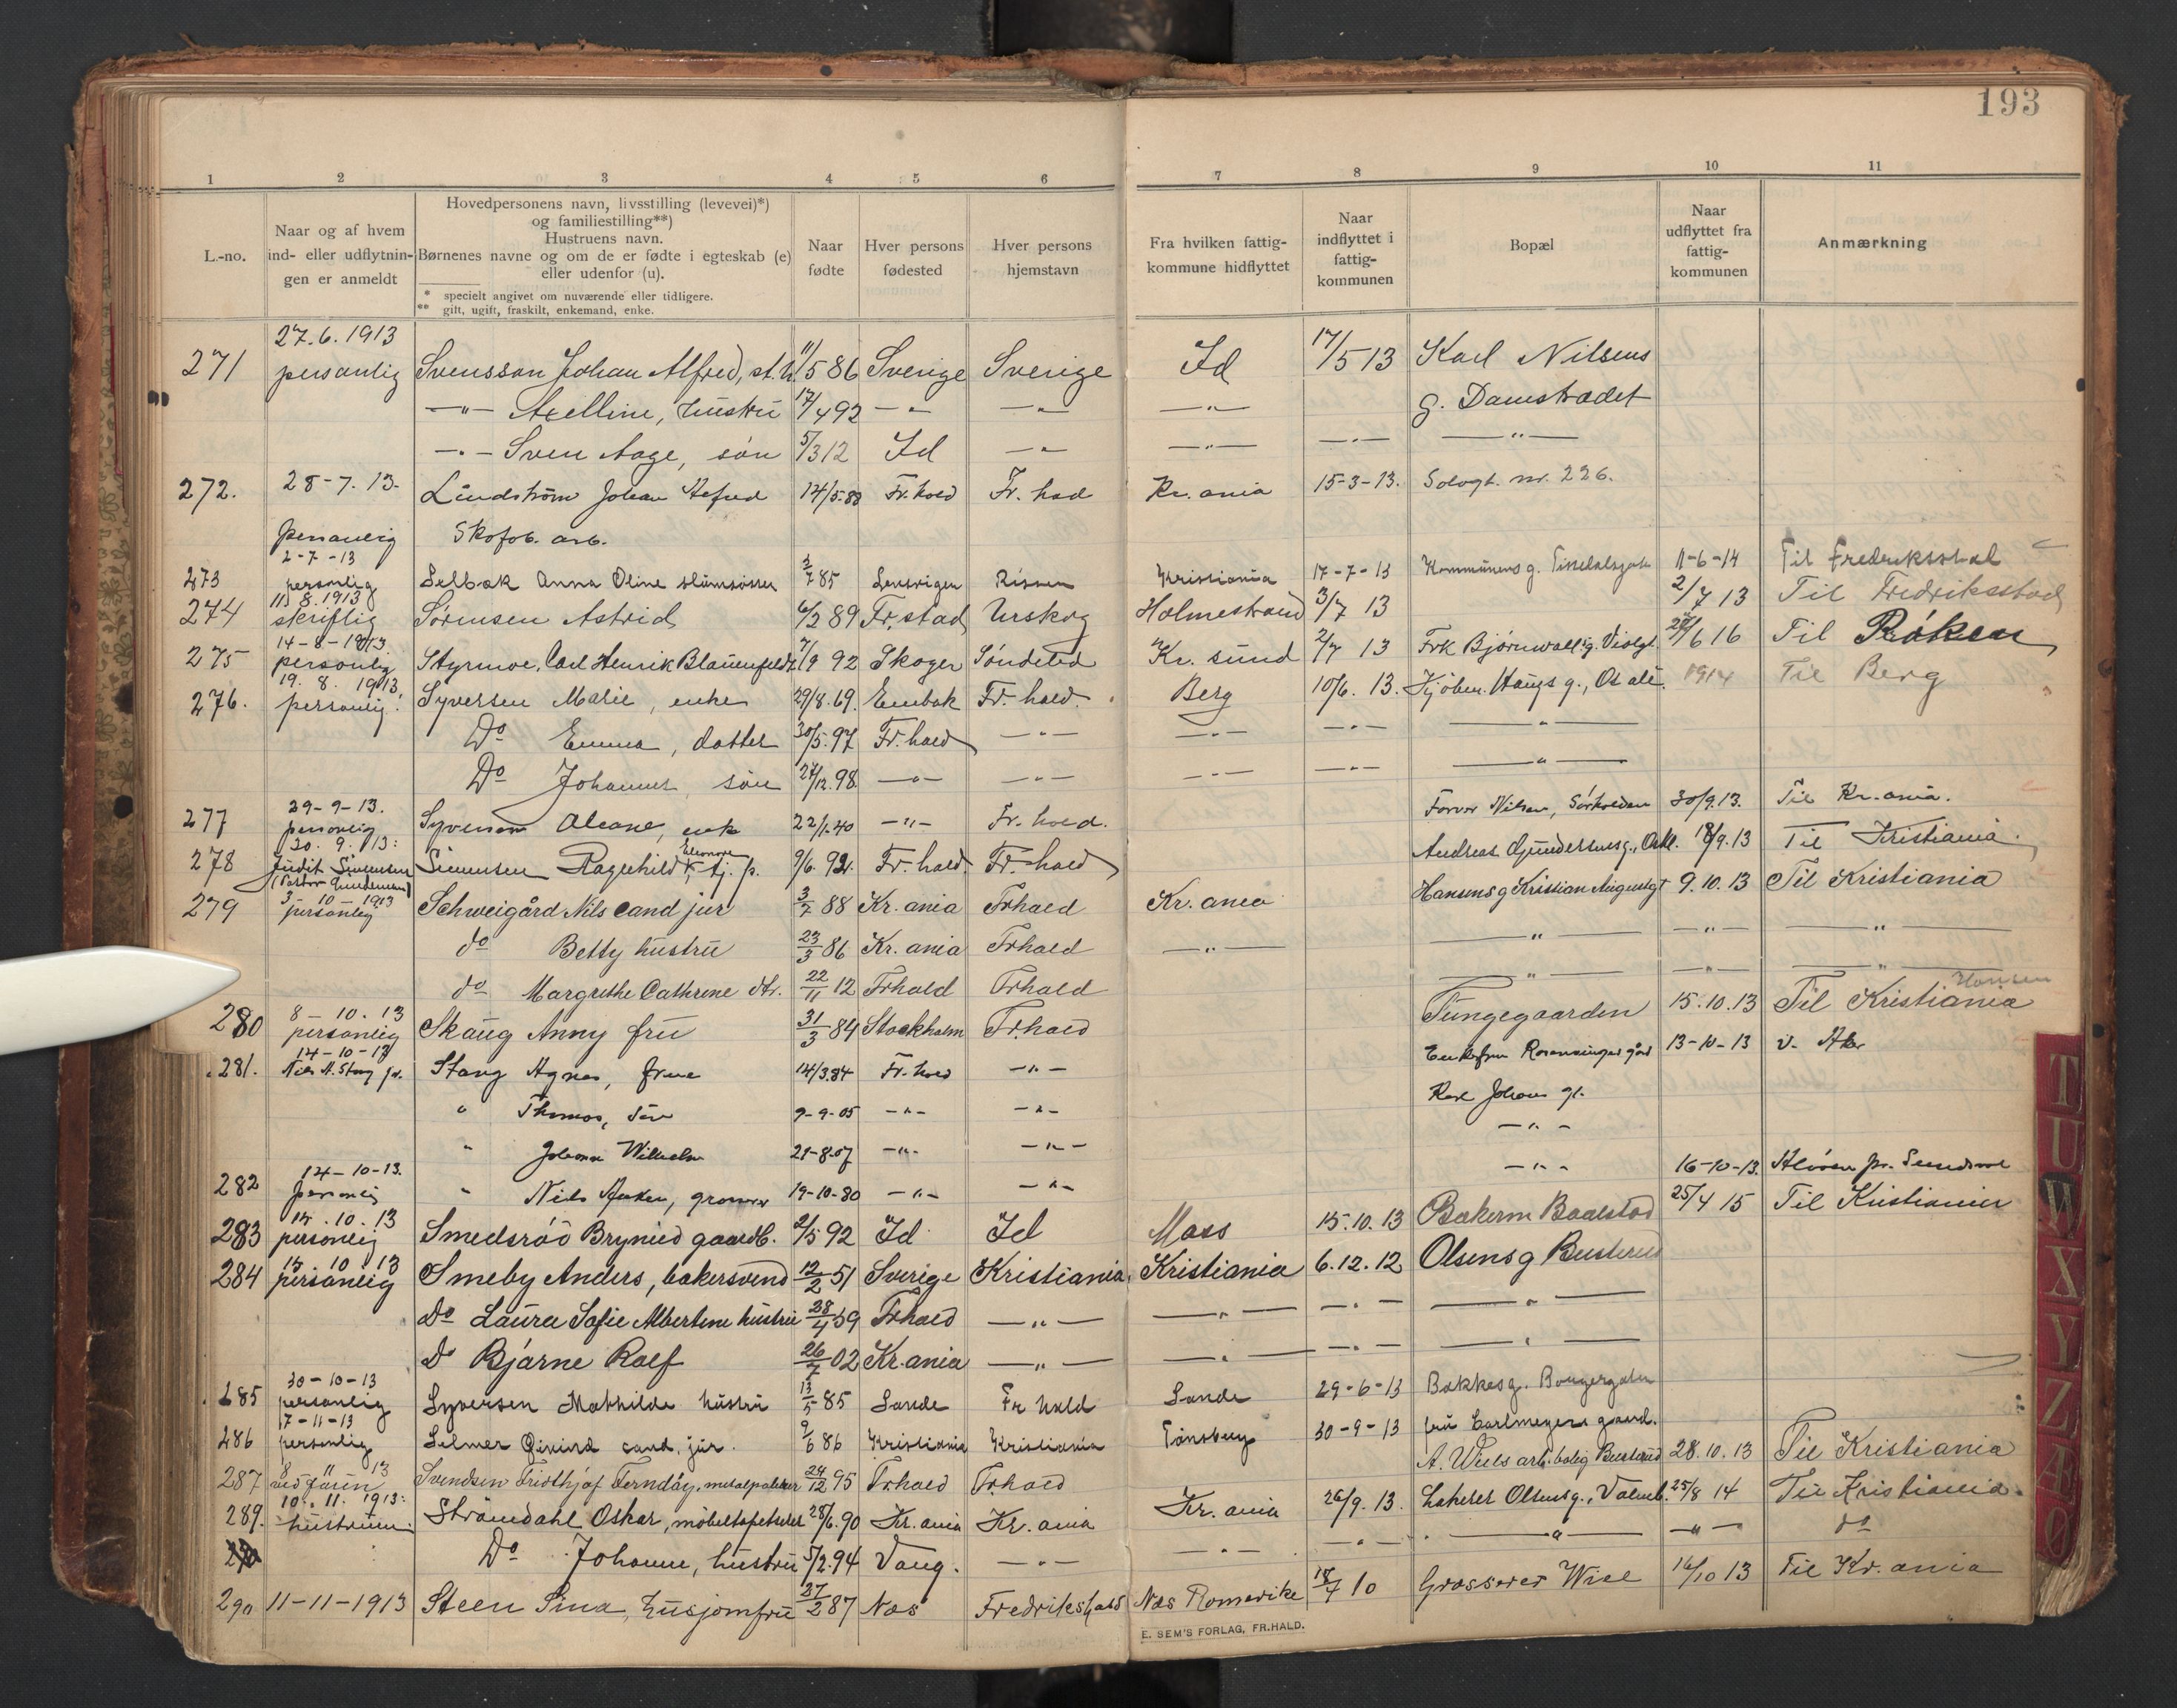 193
1 2 3 4 5 6 7 8 9 10 11
L.-no.
Naar og af hvem
ind- eller udflytnin-
gen er anmeldt
Hovedpersonens navn, livsstilling (levevei)*)
og familiestilling**)
Hustruens navn.
Børnenes navne og om de er fødte i egteskab (e)
eller udenfor (u).
* specielt angivet om nuværende eller tidligere.
** gift, ugift, fraskilt, enkemand, enke.
Naar
fødte
Hver persons
fødested
Hver persons
hjemstavn
Fra hvilken fattig-
kommune hidflyttet
Naar
indflyttet i
fattig-
kommunen
Bopæl
Naar
udflyttet fra
fattig-
kommunen
Anmærkning
27.6.1913
271 personlig Svensson Johan Alfred, st.h. 11/5 86 Sverige Sverige Id 17/5 13 Karl Nilsens
—"— Axelline, hustru 17/4 92 —"— —"— —"— g. Damstrædet
—"— Sven Aage, søn 5/3 12 Id —"— —"— —"— —"—
272. 28-7.13. Lindstrøm Johan Alfred 14/5.88 Fr.hald Fr.hald Kr.ania 15-3-13. nr. 226.
personlig Skofab. arb.
2-7-13
273 personlig Selbæk Anna Oline 3/7 85 Rissen Kristiania 17-7-13 Kommunens g. 11-6-14 Til Fredriksstad
11/8.1913
274 skriftlig Sørensen Astrid 6/2 89 Fr.stad Urskog Holmestrand 3/7 13 2/7 13 Til Fredriksstad
14-8-1913.
275 personlig Styrmoe, Carl Henrik 7/9 92 Skoger Søndeled Kr.sund 2/7 13 Frk 6 16 Til Røken
19.8.1913,
276. personlig. Syversen Marie, enke 29/8.69. Enebak Fr.hald. Berg 10/6.13. Kjøbm. Haugs g., 1914 Til Berg
Do Emma, datter 30/5.97 Fr.hald —"— —"— —"— —"—
Do Johannes, søn 27/12.98. —"— —"— —"— —"— —"—
29-9-13.
277 personlig Syversen enke 22/1.40 —"— Fr.hald. Nilsen, 30/9.13. Til Kr.ania.
30.9.13:
278 Judit Simensen Simensen Ragnhild Eleonore, tj.p. 9/6.92. Fr.hald. Fr.hald Andreas Gundersens g., 18/9.13 Til Kristiania.
3 10 1913
279 personlig Schweigård Nils cand jur 3/7 88 Kr.ania Frhald Kr.ania Hansens g Kristian Augustgt 9.10.13 Til Kristiania
do Betty hustru 23/3 86 Kr.ania Frhald —"— —"— —"— —"—
do Margrethe Cathrine dtr. 22/11 12 Frhald Frhald —"— —"— —"—
Hansen
8-10.13
280 personlig Skaug Anny fru 31/3 84 Stockholm Frhald Tungegaarden 15.10.13 Til Kristiania
14-10-13
281. Niels A. Stang jr. Stang Agnes, frue 14/3.84 Fr.hald —"— Enkefru 13-10-13 v. Aker
" Thomas, søn 9-9-05 —"— —"— Karl Johans gt.
" Johan Wilhelm 21-8.07 —"— —"— —"—
14-10-13.
282 personlig " Niels Anker, grosserer 19-10-80 —"— —"— —"— 16-10-13.
14.10.13
283 personlig Smedsrød Brynild gaardb. 2/5 92 Id Id Moss 15.10.13 Bakerm Baalstad 25/4 15 Til Kristiania
15 10 13
284 personlig Smeby Anders, bakersvend 12/2 51 Sverige Kristiania Kristiania 6.12.12 Olsens g Busterud
Do Laura Sofie Albertine hustru 28/4 59 Frhald —"— —"— —"— —"—
Do Bjarne Rolf 26/7 02 Kr.ania —"— —"— —"— —"—
30-10-13
285 personlig Syversen Mathilde hustru 13/5 85 Sande Fr hald Sande 29-6-13 Bakkes g.
7-11-13
286 personlig Selmer Øivind cand. jur. 9/6 86 Kristiania Kristiania Tønsberg 30-9-13 fru Carlmeyers gaard.
8 11 13
287 Svendsen Fridthjof 24/12 95 Frhald Frhald A. Wiels arb.bolig Busterud 28.10.13 Til Kristiania
10.11.1913:
289. hustruen. Strømdahl Oskar, møbeltapetserer 28/6.90 Kr.ania Kr.ania Kr.ania 26/9.13. Olsens g., 25/8 14 Til Kristiania.
Do Johanne, hustru 5/2.94 Vang. —"— —"— —"— —"— —"— do
290 11-11-1913 Steen Sina, husjomfru 27/2 87 Nes Fredrikshald Nes Romerike 18/4 10 Grosserer Wiel 16/10 13 Til Kr.ania
E. SEM'S FORLAG, FR.HALD.
T
U
W
X
Y
Z
Æ
Ø